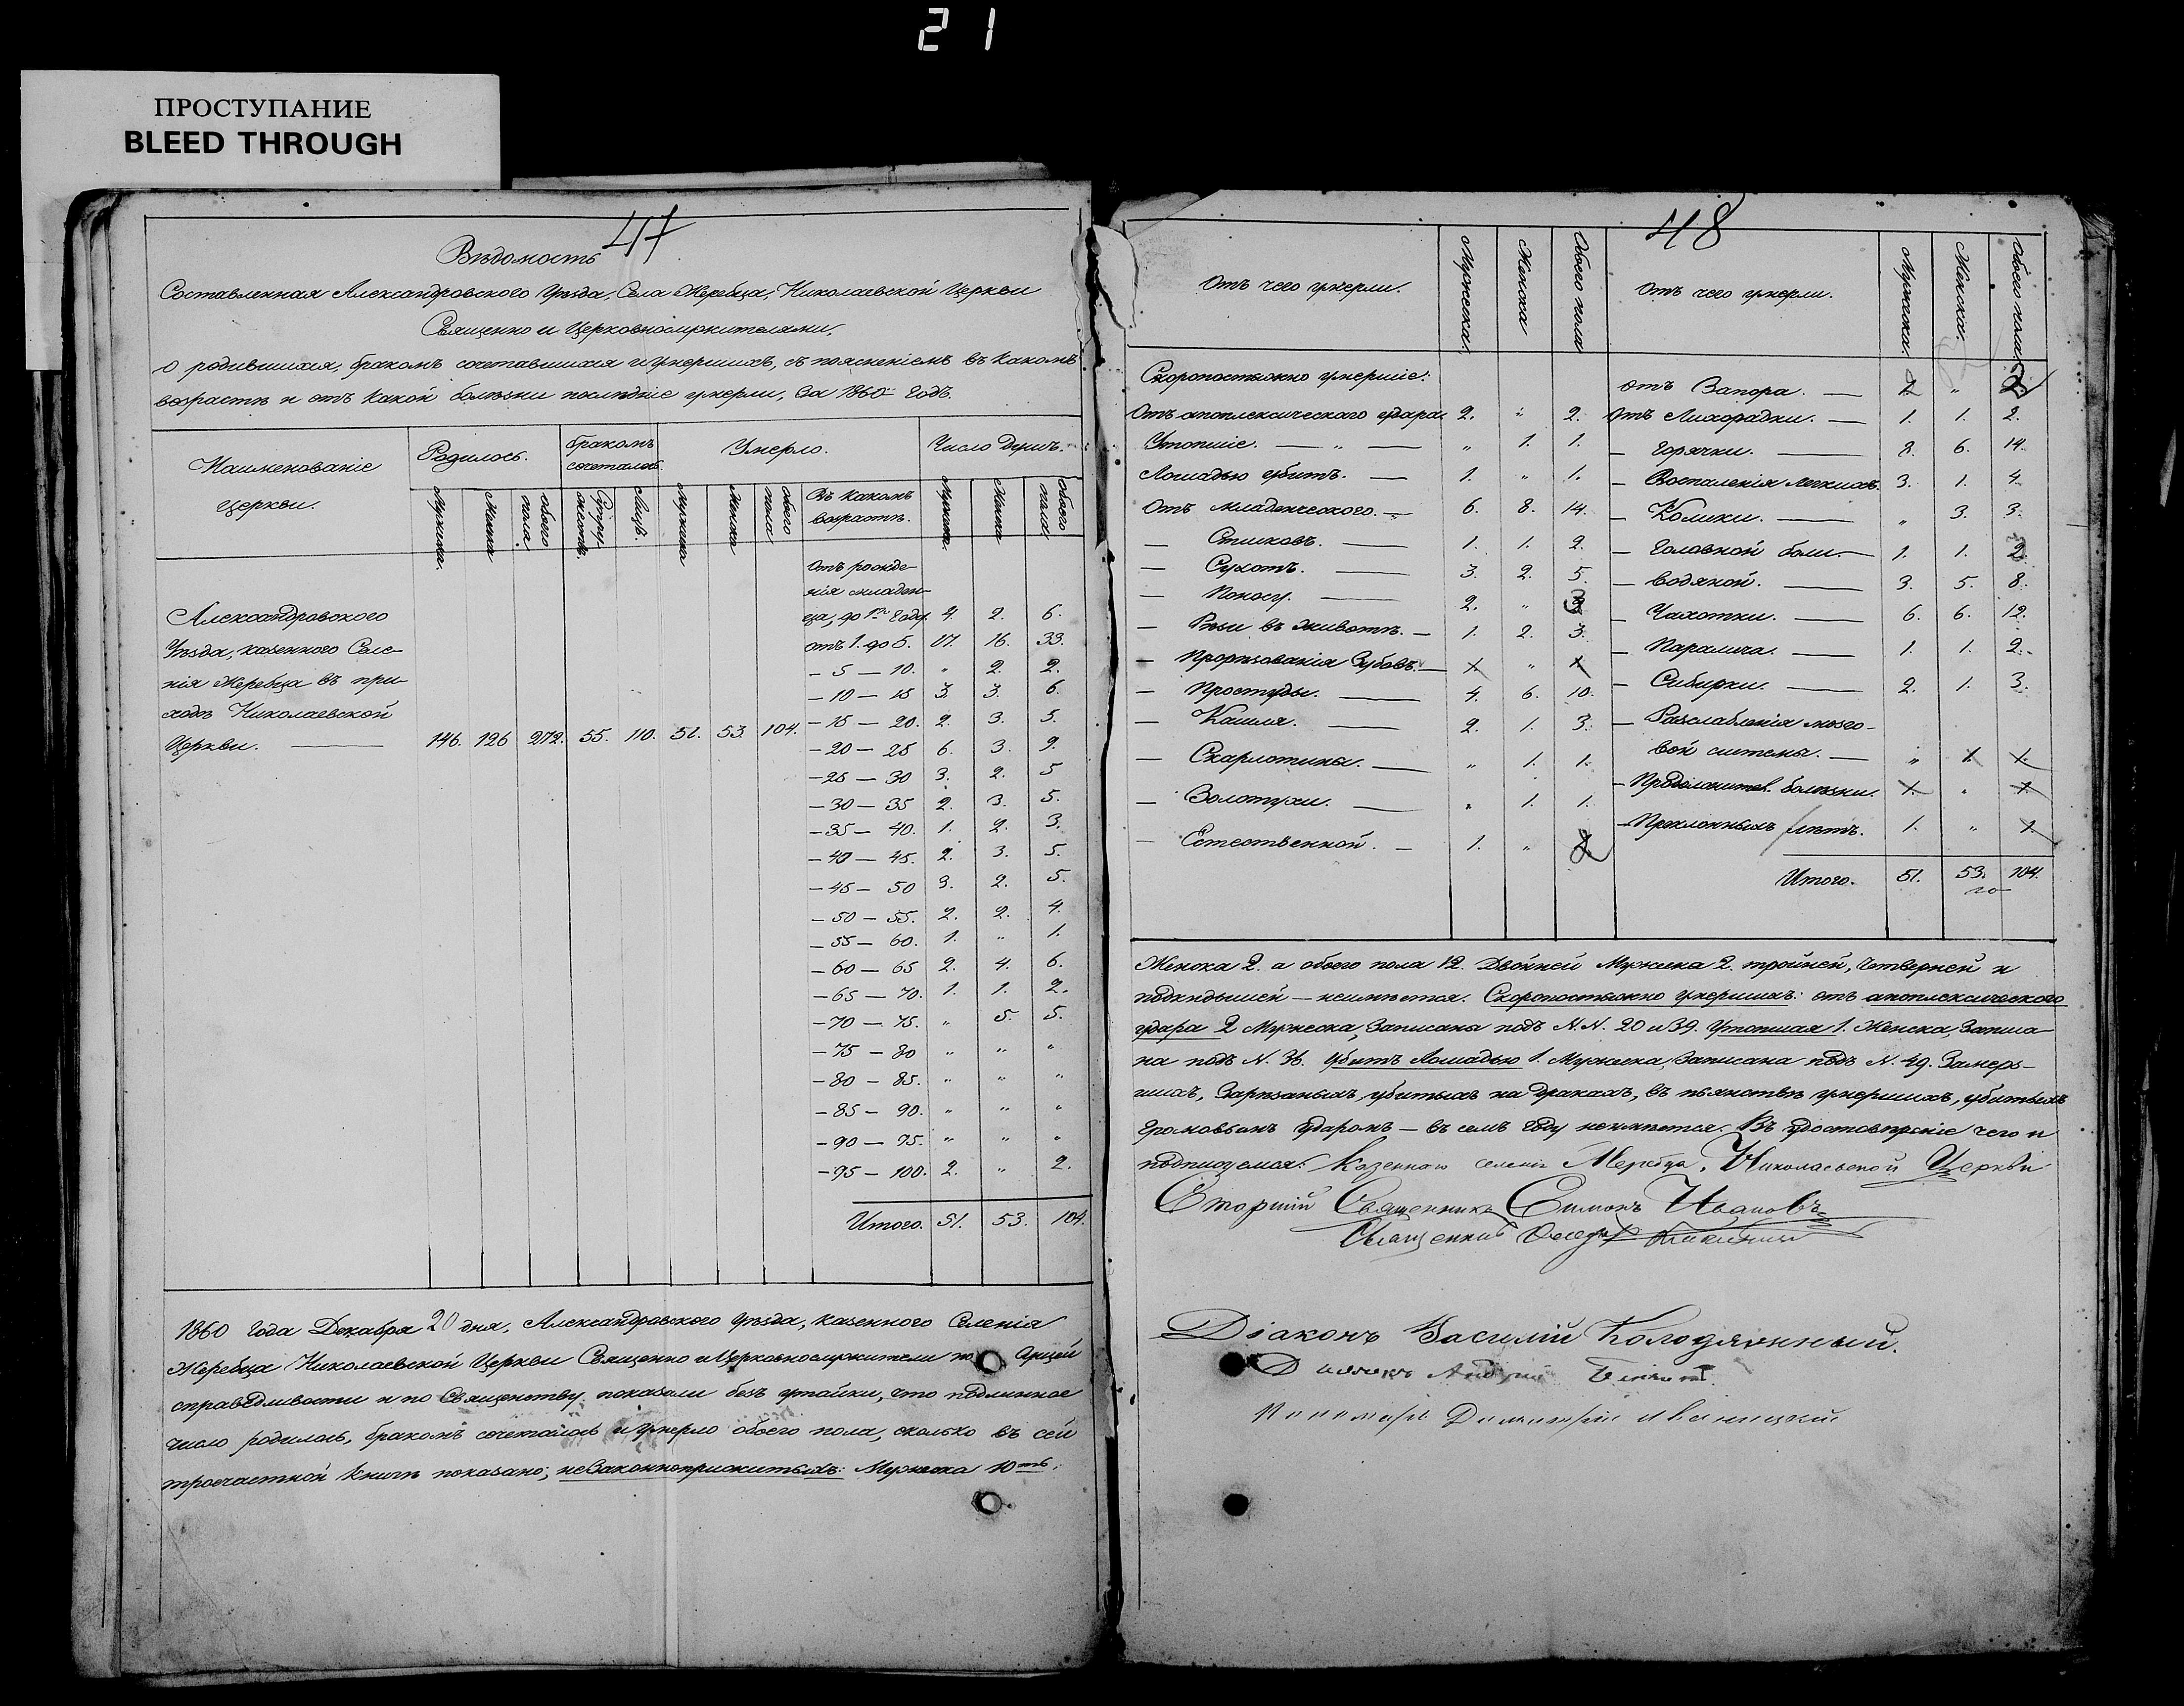 21
ПРОСТУПАНИЕ
BLEED THROUGH
47
Вѣдомость
Составленная Александровского Уѣзда, Села Жеребца, Николаевской Церкви
Священно и Церковнослужителями,
о родившихся, бракомъ сочетавшихся и умершихъ, съ поясненіемъ въ какомъ
возрастѣ и отъ какой болѣзни послѣдніе умерли, за 1860 годъ.
Наименованіе церкви. Родилось. бракомъ сочеталось. Умерло. Число Душъ.
Мужеска. Женска обоего пола. Супружествъ. Лицъ. Мужеска Женска обоего пола Въ какомъ возрастѣ. Мужеска. Женска обоего пола
Александровского
Уѣзда, казеннаго Селе-
нія Жеребца въ при-
ходѣ Николаевской
Церкви. — 146. 126 272. 55. 110. 51. 53. 104.
Отъ рожде-
нія младен-
ца, до 1го года. 4. 2. 6.
отъ 1. до 5. 17. 16. 33.
— 5 — 10. " 2. 2.
— 10 — 15 3. 3. 6.
— 15 — 20. 2. 3. 5.
— 20 — 25 6. 3. 9.
— 25 — 30 3. 2. 5
— 30 — 35 2. 3. 5.
— 35 — 40. 1. 2. 3.
— 40 — 45. 2. 3. 5.
— 45 — 50 3. 2. 5.
— 50 — 55. 2. 2. 4.
— 55 — 60. 1. " 1.
— 60 — 65 2. 4. 6.
— 65 — 70. 1. 1. 2.
— 70 — 75. " 5. 5.
— 75 — 80 " " "
— 80 — 85. " " "
— 85 — 90. " " "
— 90 — 95. " " "
— 95 — 100. 2. " 2.
Итого. 51. 53. 104.
1860 года Декабря 20 дня, Александровского уѣзда, казенного Селенія
Жеребца Николаевской Церкви Священно и Церковнослужители по сущей
справедливости и по Священству показали безъ утайки, что подлинное
число родилось, бракомъ сочеталось и умерло обоего пола, сколько въ сей
троечастной книгѣ показано; незаконноприжитыхъ: Мужеска 10ть,
48
Отъ чего умерли. Мужеска. Женска Обоего пола
Скоропостижно умершіе:
Отъ апоплексического удара. 2. " 2.
Утопшіе. — " — " 1. 1.
Лошадью убитъ. — 1. " 1.
Отъ младенческого. — 6. 8. 14.
— Стиковъ. — 1. 1. 2.
— Сухотъ. — 3. 2. 5.
— Поносу. — 2. "
— Рѣзи въ животѣ. — 1. 2. 3.
— Прорѣзованія Зубовъ. — 1 " 1
— Простуды. — 4. 6. 10.
— Кашля. — 2. 1. 3.
— Скарлотины. — " 1. 1.
— Золотухи. — " 1. 1.
— Естественной. — 1. "
Отъ чего умерли. Мужеска. Женска. Обоего пола
отъ Запора. — "
Отъ Лихорадки. — 1. 1. 2.
— Горячки. — 8. 6. 14.
— Воспаленія легкихъ. 3. 1. 4.
— Колики. — " 3. 3.
— Головной боли. — 1. 1. 2
— Водяной. — 3. 5. 8.
— Чахотки. — 6. 6. 12.
— Паралича. — 1. 1. 2.
— Сибирки. — 2. 1. 3.
— Разслабленія мозго-
вой системы. — " 1. 1.
— Продолжител. болѣзни. 1. " 1.
— Преклонныхъ лѣтъ. 1. " 1.
Итого. 51. 53. 104.
Женска 2. а обоего пола 12. Двойней Мужеска 2. тройней, четверней и
подкидышей — неимѣется. Скоропостижно умершихъ: отъ апоплексического
удара 2 Мужеска, записаны подъ N.N. 20 и 39. Утопшая 1. Женска, записа-
на подъ N. 36. Убитъ Лошадью 1. Мужеска, записана подъ N. 49. Замерз-
шихъ, Зарѣзаныхъ, убитыхъ на дракахъ, въ пьянствѣ умершихъ, убитыхъ
громовымъ ударомъ — въ семъ году неимѣется. Въ удостовѣреніе чего и
подписуемся: Казенного селенія Жеребца, Николаевской Церкви
Старшій Священникъ Симонъ Ивановъ
Священникъ
Діаконъ Василій Колодяжный.
Дьячекъ Андрей
Пономарь Димитрій Иваницкій